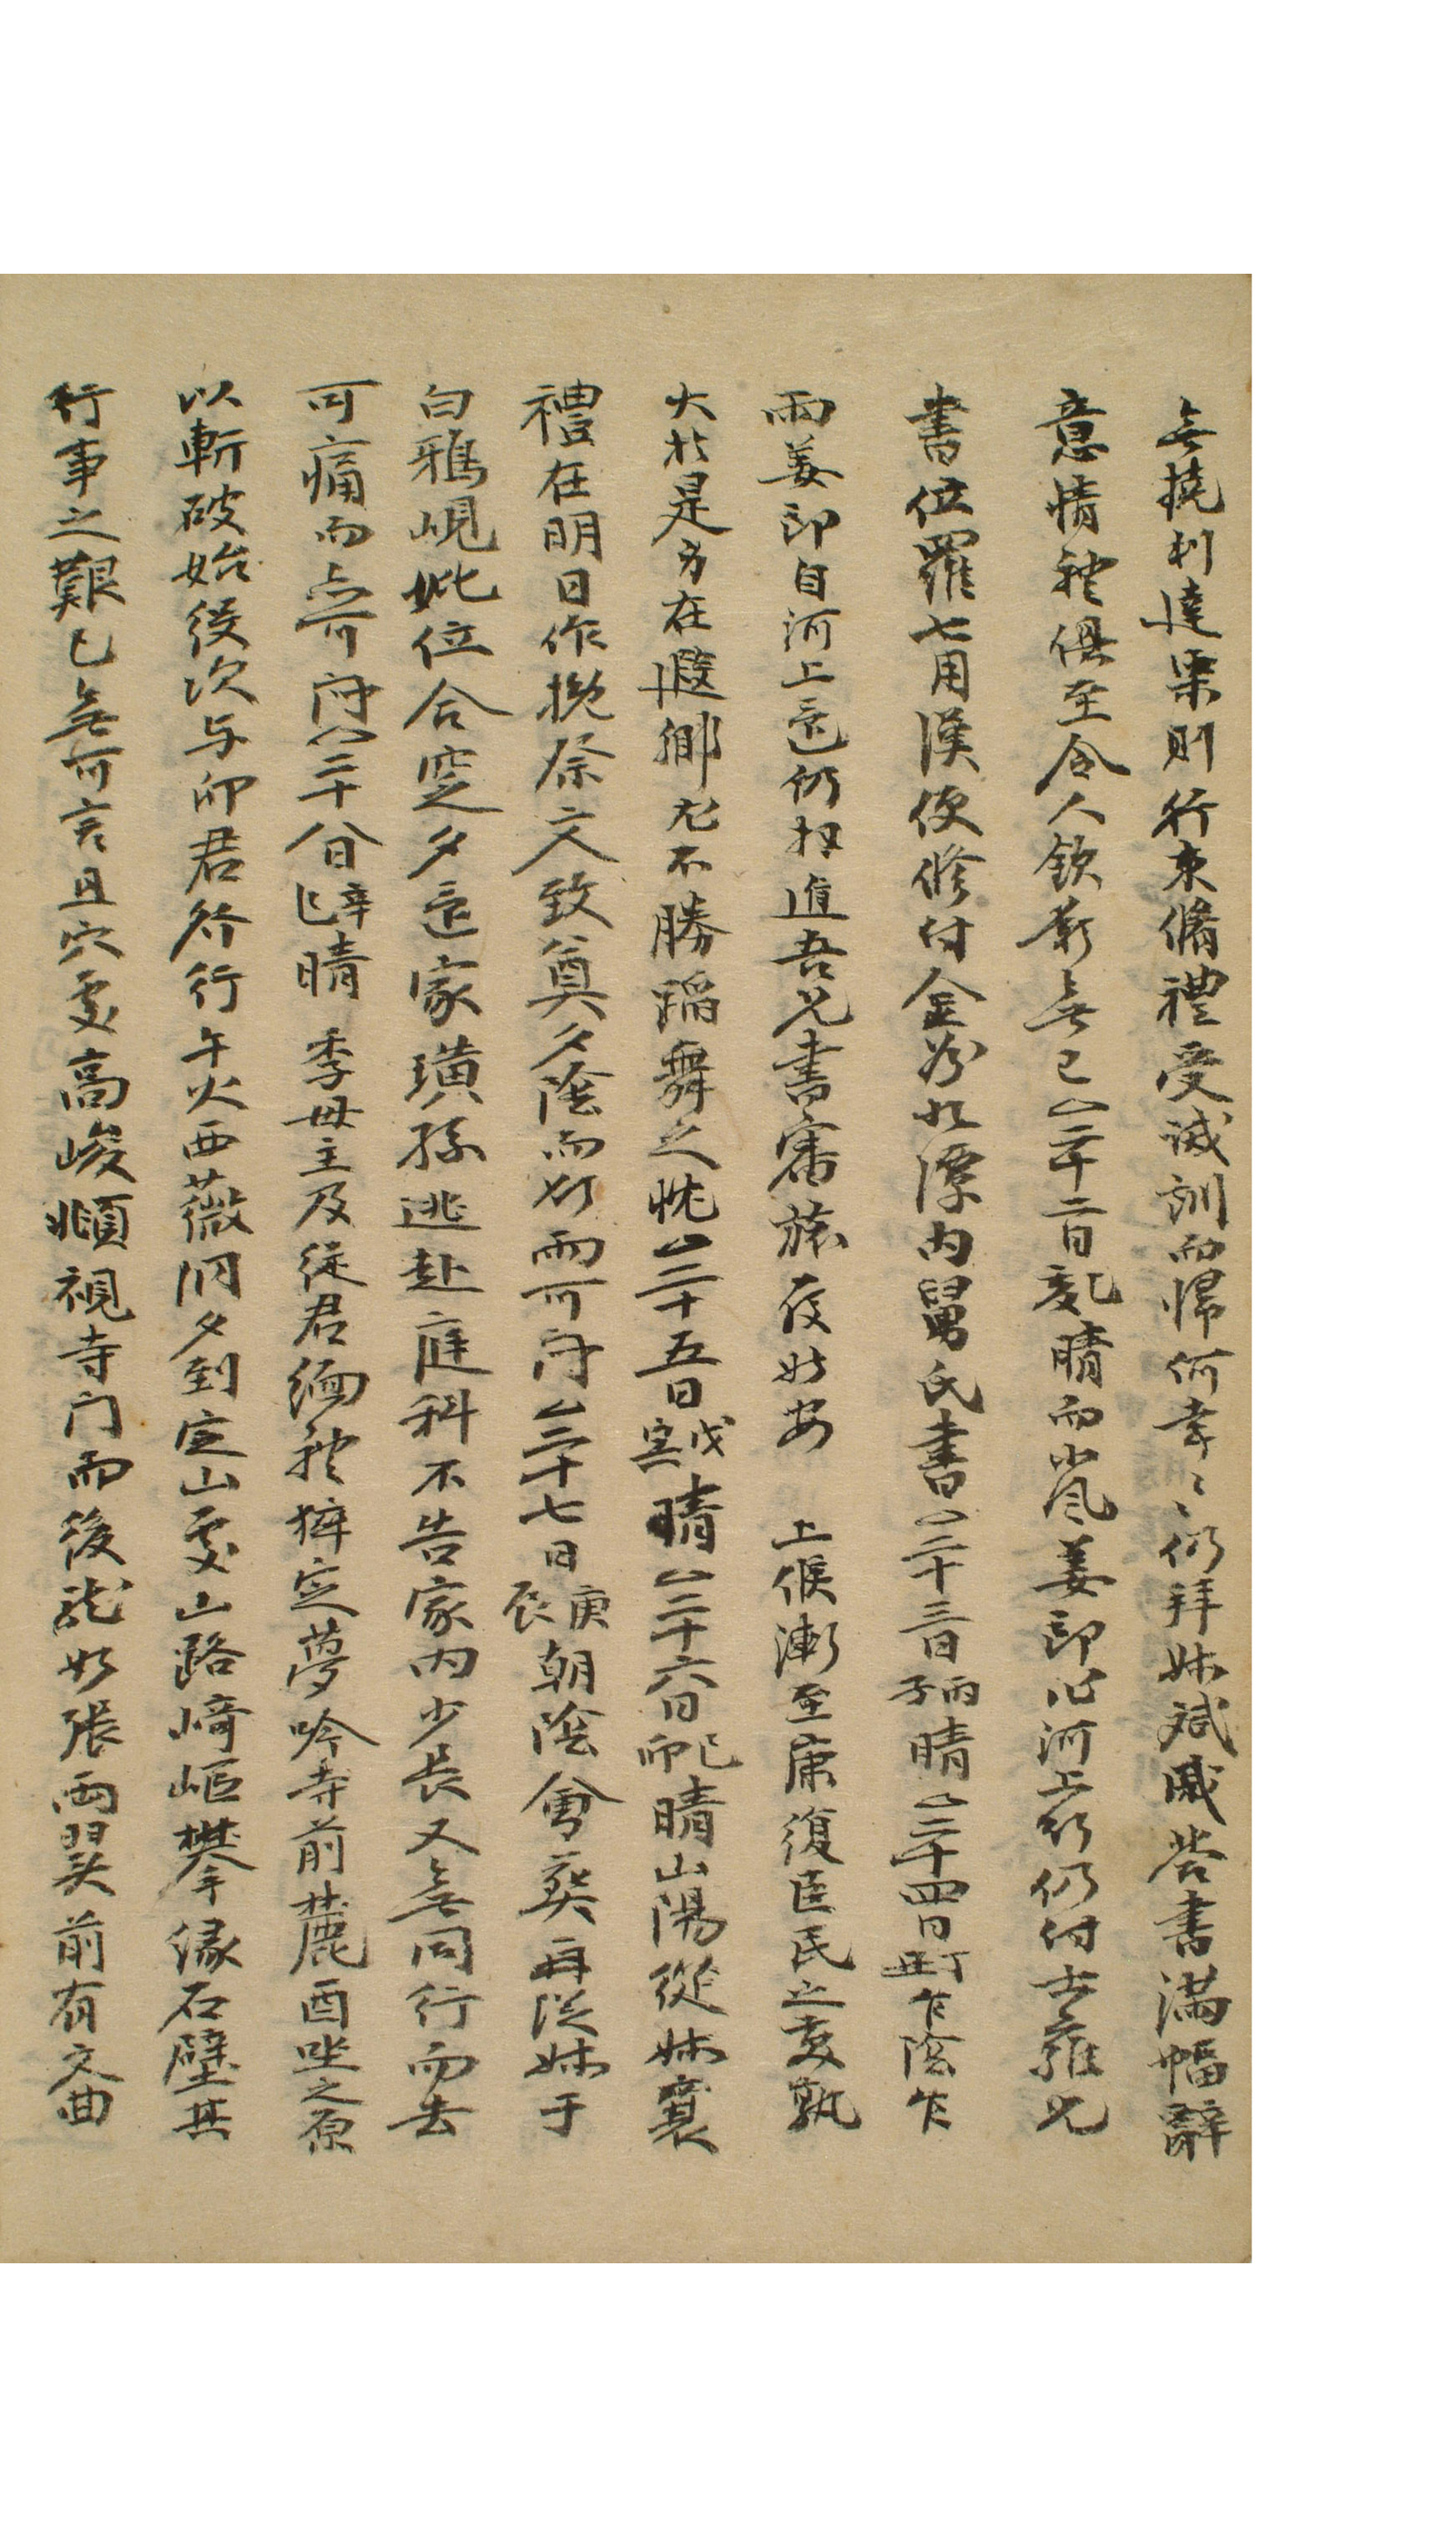 無撓利達栗則行束脩禮受誡訓而歸何幸〻仍拜妹婿戚答書滿幅辭
意情礼俱至令人欽歎無已△二十二日乙亥晴而嵐姜郞以河上行仍付士雍兄
書位羅七用漢便修付金谷北潭內舅氏書△二十三日丙子晴△二十四日丁丑乍陰乍
雨姜郞自河上還仍拜進吾兄書審旅履姑安 上候漸至康復臣民之慶孰
大於是身在遐鄕尤不勝蹈舞之忱△二十五日戊寅晴△二十六日己卯晴山陽從妹襄
禮在明日作挽祭文致奠夕陰而灯雨可悶△二十七日庚辰朝陰會葬再從妹于
白鴉峴此位合窆夕還家璜孫逃赴庭科不告家內少長又無同行而去
可痛而亦可悶△二十八日辛巳晴 季母主及從君緬禮擇定夢吟寺前麓酉坐之原
以斬破始役次与卯君發行午火西薇洞夕到定山處山路崎嶇攀緣石壁其
行事之艱已無可言且穴處高峻順視寺门而後龍如張兩翼前有文曲